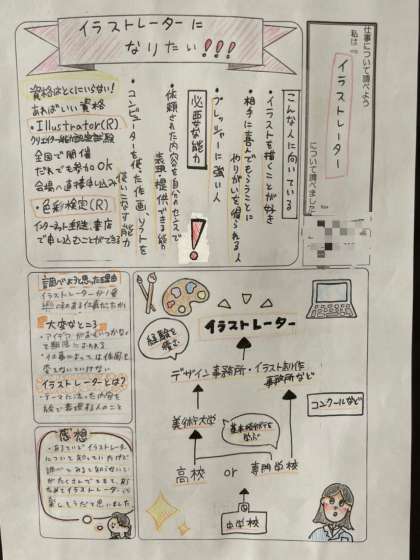 仕事について調べよう
私は『
イラストレーター
』について調べました
イラストレーターに
なりたい!!!
こんな人に向いている
・イラストを描くことが好き
・相手に喜んでもらうことに
やりがいを得られる人
・プレッシャーに強い人
必要な能力
・依頼された内容を自分のセンスで
表現・提供できる能力
・コンピューターを使った作画ソフトを
使いこなす能力
!
資格はとくにいらない!
あればいい資格
・Illustrator(R)
クリエイター能力認定試験
全国で開催
だれでも参加OK
会場へ直接申し込み
・色彩検定(R)
インターネット・郵送・書店
で申し込むことができる
調べようと思った理由
イラストレーターが1番
大変なところ
・アイデアがおもいつかなくて
イラストレーターとは?
・テーマに沿った内容を
絵で表現する人のこと
感想
・あるていどイラストレーター
について知っていたけど
調べてみると知らないこと
がたくさんでてきて、改
ためてイラストレーターは
楽しそうだと思いました
イラストレーター
経験を積む
デザイン事務所・イラスト制作
事務所など
コンクールなど
美術大学
基本的技術を
学ぶ
高校 or 専門学校
中学校